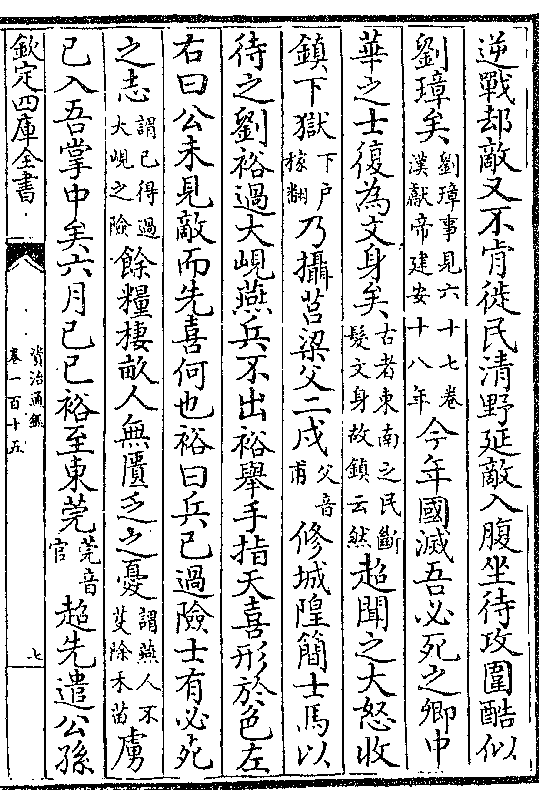 逆戰却敵又不肯徙民清野延敵入腹坐待攻圍酷似
劉璋矣劉璋事見六十七卷漢獻帝建安十八年今年國滅吾必死之卿中
華之士復為文身矣古者東南之民斷髮文身故鎮云然超聞之大怒收
鎮下獄下户稼翻乃攝莒梁父二戍父音甫修城隍簡士馬以
待之劉裕過大峴燕兵不出裕舉手指天喜形於色左
右曰公未見敵而先喜何也裕曰兵已過險士有必死
之志謂已得過大峴之險餘糧棲畝人無匱乏之憂謂燕人不芟除禾苗虜
已入吾掌中矣六月己巳裕至東莞莞音官超先遣公孫
欽定四庫全書
資治通鑑
卷一百十五
七